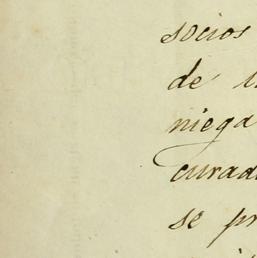 socios
de
niega
curad
se pr